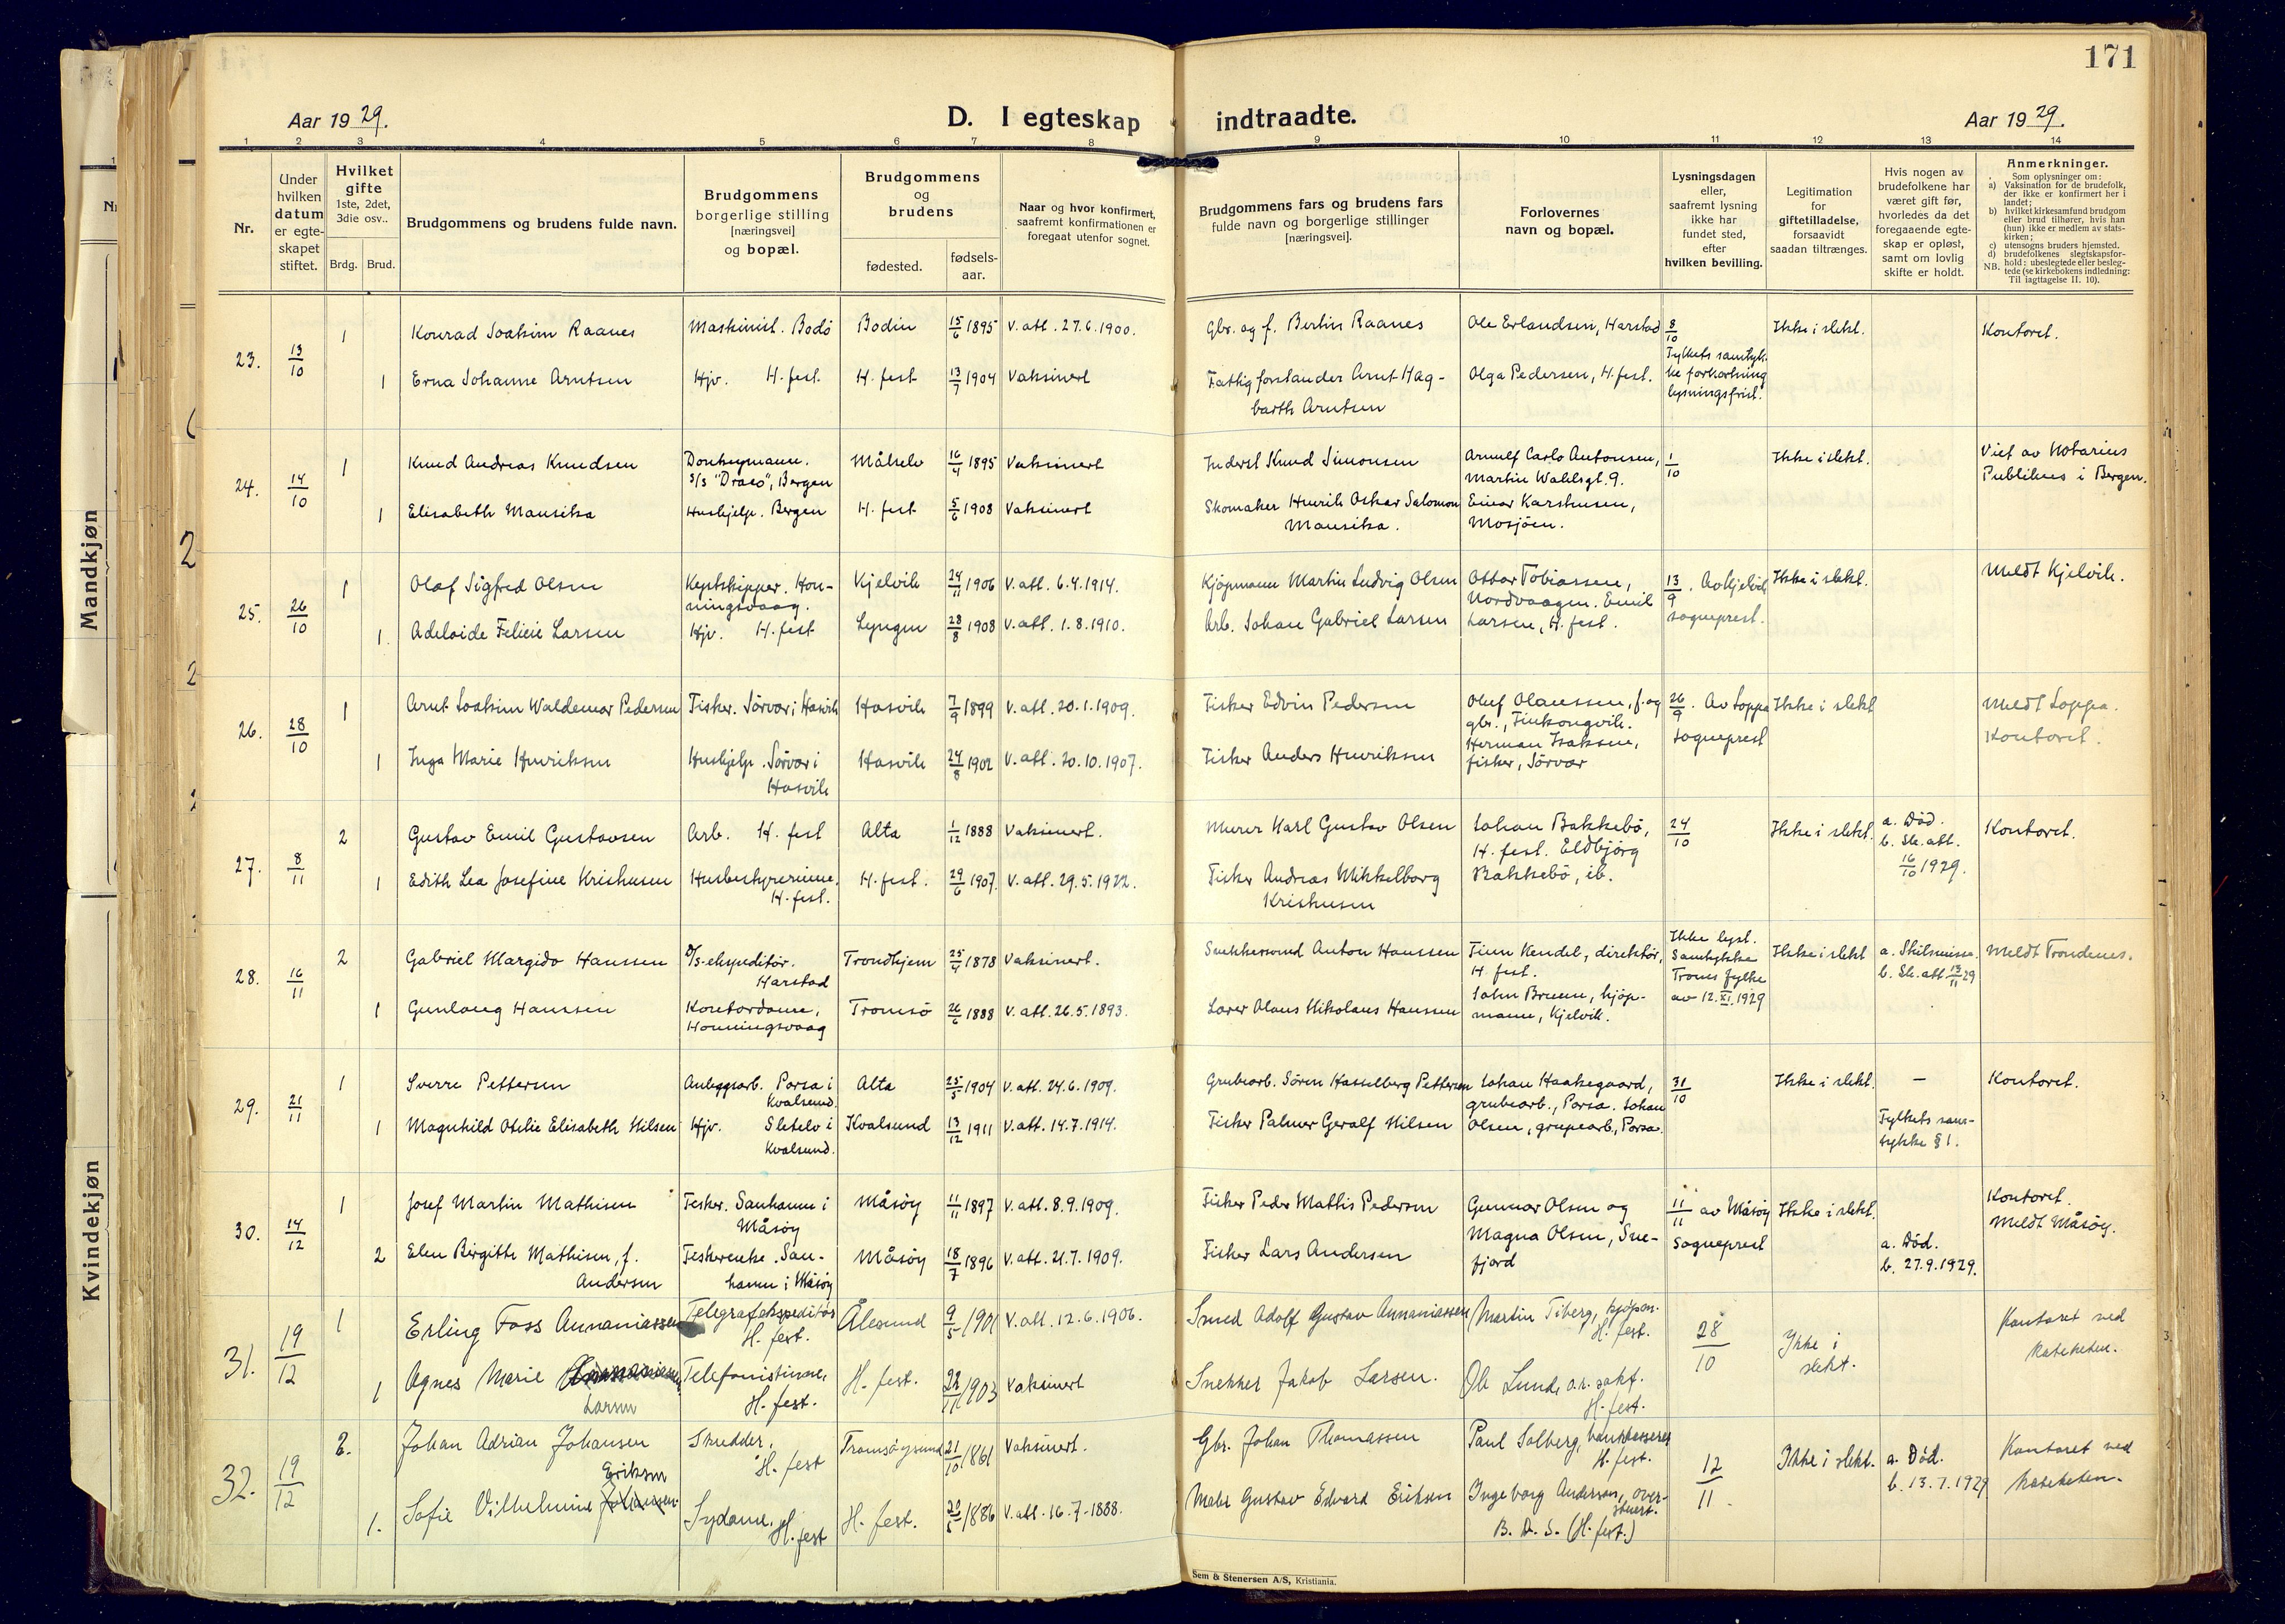 171
Aar 1929.
D. I egteskap indtraadte.
Aar 1929.
1 2 3 4 5 6 7 8 9 10 11 12 13 14
Nr.
Under hvilken datum er egteskapet stiftet.
Hvilket gifte 1ste, 2det, 3die osv..
Brdg. Brud.
Brudgommens og brudens fulde navn.
Brudgommens borgerlige stilling [næringsvei] og bopæl.
Brudgommens og brudens
fødested. fødselsaar.
Naar og hvor konfirmert, saafremt konfirmationen er foregaat utenfor sognet.
Brudgommens fars og brudens fars fulde navn og borgerlige stillinger [næringsvei].
Forlovernes navn og bopæl.
Lysningsdagen eller, saafremt lysning ikke har fundet sted, efter hvilken bevilling.
Legitimation for giftetilladelse, forsaavidt saadan tiltrænges.
Hvis nogen av brudefolkene har været gift før, hvorledes da det foregaaende egteskap er opløst, samt om lovlig skifte er holdt.
Anmerkninger.
Som oplysninger om:
a) Vaksination for de brudefolk, der ikke er konfirmert her i landet;
b) hvilket kirkesamfund brudgom eller brud tilhører, hvis han (hun) ikke er medlem av statskirken;
c) utensogns bruders hjemsted.
d) brudefolkenes slegtskapsforhold: ubeslegtede eller beslegtede (se kirkebokens indledning: Til iagttagelse II. 10).
NB.
Mandkjøn
Kvindekjøn
23. 13/10 1 Konrad Joakim Raanes Maskinist. Bodö Bodin 15/6 1895 V. att. 27.6.1900. Gbr. og f. Bertin Raanes Ole Erlandsen, Harstad 8/10 Ikke i slekt. Kontoret.
Fylkets samtykke forkortning lysningsfrist.
1 Erna Johanne Arntsen Hjv. H. fest. H. fest 13/7 1904 Vaksinert Fattigforstander Arnt Hagbarth Arntsen Olga Pedersen, H. fest.
24. 14/10 1 Knud Andreas Knudsen Donkeymann. s/s "Draco", Bergen Målselv 16/4 1895 Vaksinert Inderst Knud Simonsen Arnulf Carlo Antonsen, Martin Wahlsgt. 9. 1/10 Ikke i slekt. Viet av Notarius Publikus i Bergen.
1 Elisabeth Mansika Hushjelp. Bergen H. fest 5/6 1908 Vaksinert Skomaker Henrik Oskar Salomon Mansika. Einar Karstensen, Mosjöen.
25. 26/10 1 Olaf Sigfred Olsen Kystskipper. Honningsvaag. Kjelvik 24/11 1906 V. att. 6.4.1914. Kjöpmann Martin Ludvig Olsen Ottar Tobiassen, Nordvaagen. Emil Larsen, H. fest. 13/9. Av Kjelvik sogneprest. Ikke i slekt. Meldt Kjelvik.
1. Adelaide Felicie Larsen Hjv. H. fest Lyngen 28/8 1908 V. att. 1.8.1910. Arb. Johan Gabriel Larsen
26. 28/10 1 Arnt Joakim Waldemar Pedersen Fisker. Sörvær i Hasvik Hasvik 7/9 1899 V. att. 20.1.1909. Fisker Edvin Pedersen Oluf Olaussen, f. og gbr., Finkongvik. Herman Isaksen, fisker, Sörvær 26/9. Av Loppa sogneprest Ikke i slekt Meldt Loppa. Kontoret.
1 Inga Marie Henriksen Hushjelp. Sörvær i Hasvik Hasvik 24/8 1902 V. att. 20.10.1907. Fisker Anders Henriksen
27. 8/11 2 Gustav Emil Gustavsen Arb. H. fest Alta 1/12 1888 Vaksinert. Murer Karl Gustav Olsen Johan Bakkebö, H. fest. Eldbjörg Bakkebö, ib. 24/10 Ikke i slekt. a. Död. b. Sk. att. 16/10 1929. Kontoret.
1 Edith Lea Josefine Kristensen Husbestyrerinne. H. fest. H. fest. 29/6 1907. V. att. 29.5.1922. Fisker Andreas Mikkelborg Kristensen
28. 16/11 2 Gabriel Margido Hanssen D/s-ekspeditör. Harstad Trondhjem 25/4 1878 Vaksinert. Anton Hanssen Finn Kendel, direktör, H. fest. John Bruun, kjöpmann, Kjelvik. Ikke lyst. Samtykke Troms fylke av 12.XI.1929 Ikke i slekt a. Skilsmisse. b. Sk. att 13/11 29 Meldt Trondenes.
1 Gunlaug Hanssen Kontordame, Honningsvaag Tromsö 26/6 1888 V. att. 26.5.1893. Lærer Olaus Nikolaus Hanssen
29. 21/11 1 Sverre Pettersen Anleggsarb. Porsa i Kvalsund. Alta 25/5 1904 V. att. 24.6.1909. Grubearb. Sören Hasselberg Pettersen Johan Haakegaard, grubearb., Porsa. Johan Olsen, grupearb., Porsa. 31/10 Ikke i slekt. — Kontoret.
1 Magnhild Otelie Elisabeth Nilsen Hjv. Sletelv i Kvalsund. Kvalsund 13/12 1911 V. att. 14.7.1914. Fisker Palmer Geralf Nilsen Fylkets samtykke § 1.
30. 14/12 1 Josef Martin Mathisen Fisker. Sanhamn i Måsöy Måsöy 11/11 1897 V. att. 8.9.1909. Fisker Peder Mathis Pedersen Gunnar Olsen og Magna Olsen, Snefjord 11/11 av Måsöy sogneprest Ikke i slekt. Kontoret. Meldt Måsöy.
2 Elen Birgitte Mathisen, f. Andersen Fiskerenke. Sanhamn i Måsöy Måsöy 18/7 1896 V. att. 21.7.1909. Fisker Lars Andersen a. Död. b. 27.9.1929.
31. 19/12 1 Erling Foss Annaniassen Telegrafekspeditör H. fest. Ålesund 9/5 1901 V. att. 12.6.1906. Smed Adolf Gustav Annaniassen Martin Tiberg, kjöpm. H. fest. 28/10 Ikke i slekt. Kontoret ved kateketen.
1 Agnes Marie Larsen Telefonistinne, H. fest. H. fest. 28/11 1903 Vaksinert Snekker Jakob Larsen. Ole Lund, o.r. sakf. H. fest.
32. 19/12 2. Johan Adrian Johansen Skredder, H. fest Tromsöysund 21/10 1861 Vaksinert. Gbr. Johan Thomassen Paul Solberg, bankkasserer H. fest. 12/11. Ikke i slekt. a. Död. b. 13.7.1929 Kontoret ved kateketen.
1. Sofie Vilhelmine Johansen Eriksen Sydame. H. fest H. fest. 1886 V. att. 16-7-1888. Maler Gustav Edvard Eriksen Ingeborg Andersen, overstuert. B. D. S. (H. fest.)
Sem & Stenersen A/S, Kristiania.